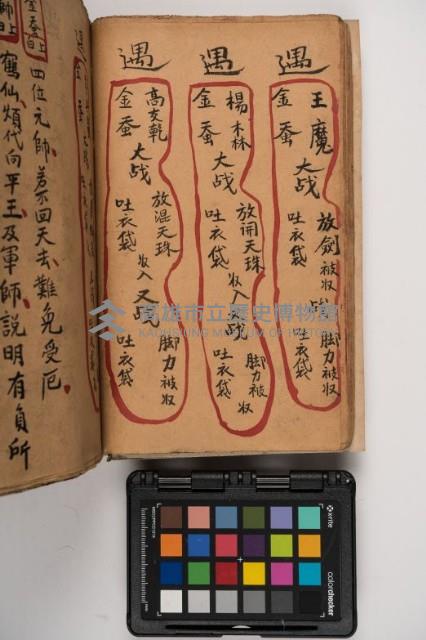 遇
王魔
金蚕
大战
放劍被収
吐衣袋
战
脚力被収
吐衣袋
遇
楊森
金蚕
大战
放開天珠
吐衣袋
収入
脚力被収
吐衣袋
遇
高友乾
金蚕
大战
放混天珠
吐衣袋
収入
又战
脚力被収
吐衣袋
四位元師若回天去難免受厄
鶴仙煩代向平王及軍師說明有負所
高雄市立歷史博物館
KAOHSIUNG MUSEUM OF HISTORY
x-rite
colorchecker